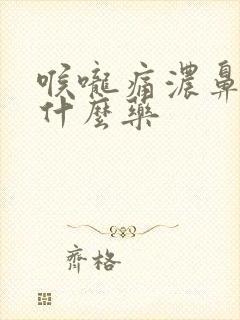 喉嚨痛濃鼻
什麼藥
齊格